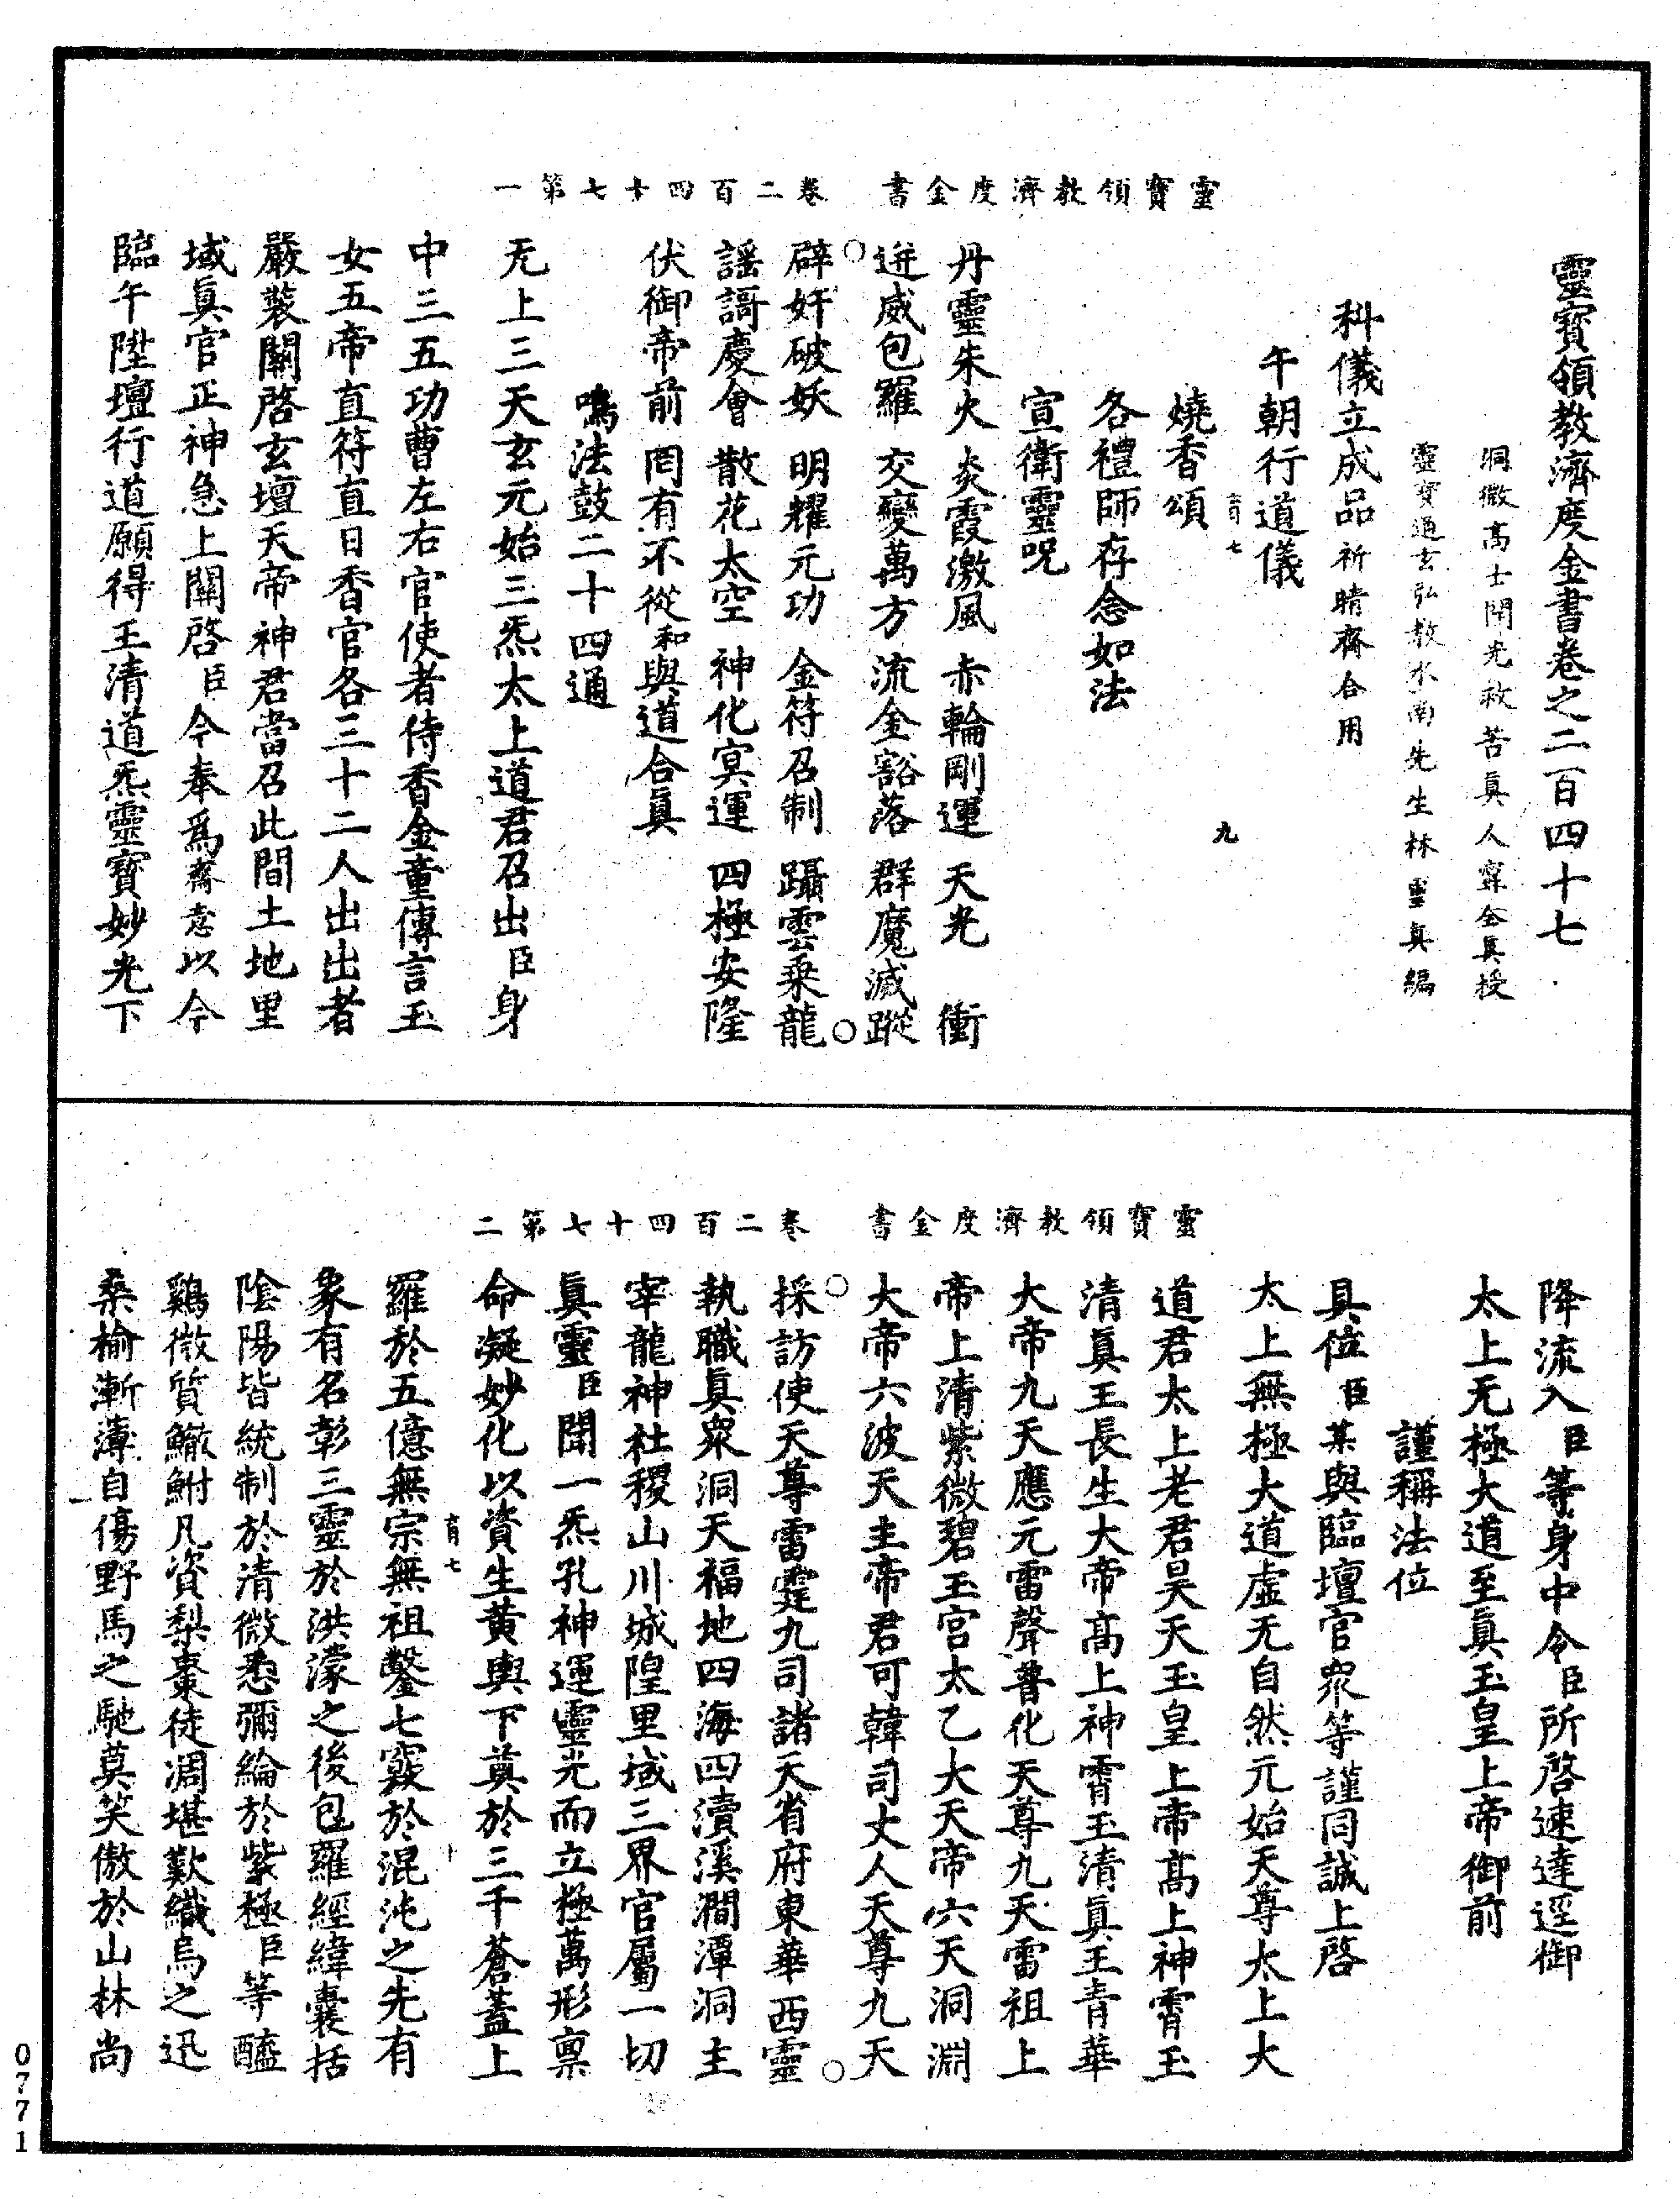 靈寶領教濟度金書卷之二百四十七
洞微高士開光救苦真人甯全真授
靈寶通玄弘教水南先生林靈真編
科儀立成品祈晴齋合用
午朝行道儀
燒香頌
各禮師存念如法
宣衛靈呪
丹靈朱火 炎霞激風 赤輪剛運 天光 衝
迸威包羅 交變萬方 流金豁落 群魔滅蹤
辟奸破妖 明耀元功 金符召制 躡雲乘龍
謡謌慶會 散花太空 神化冥運 四極安隆
伏御帝前 罔有不從和與道合真
靈寶領教濟度金書 卷二百四十七第一
鳴法鼓二十四通
无上三天玄元始三炁太上道君召出臣身
中三五功曹左右官使者侍香金童傳言玉
女五帝直符直日香官各三十二人出出者
嚴裝關啓玄壇天帝神君當召此間土地里
域真官正神急上關啓臣今奉爲齋意以今
臨午陞壇行道願得王清道炁靈寶妙光下
降流入臣等身中令臣所啓速達逕御
太上无極大道至真玉皇上帝御前
謹稱法位
具位臣某與臨壇官衆等謹同誠上啓
太上無極大道虛无自然元始天尊太上大
道君太上老君昊天玉皇上帝高上神霄玉
清真王長生大帝高上神霄玉清真王青華
大帝九天應元雷聲普化天尊九天雷祖上
帝上清紫微碧玉宮太乙大天帝六天洞淵
大帝六波天主帝君可韓司丈人天尊九天
採訪使天尊雷霆九司諸天省府東華西靈
執職真衆洞天福地四海四瀆溪澗潭洞主
宰龍神社稷山川城隍里域三界官屬一切
真靈臣聞一炁孔神運靈光而立極萬形禀
靈寶領教濟度金書 卷二百四十七第二
命凝妙化以資生黄輿下奠於三千蒼蓋上
羅於五億無宗無祖鑿七竅於混沌之先有
象有名彰三靈於洪濛之後包羅經緯囊括
陰陽皆統制於清微悉彌綸於紫極臣等醯
鷄微質鱍鮒凡資梨棗徒凋堪歎織烏之迅
桑榆漸薄自傷野馬之馳莫笑傲於山林尚
0771